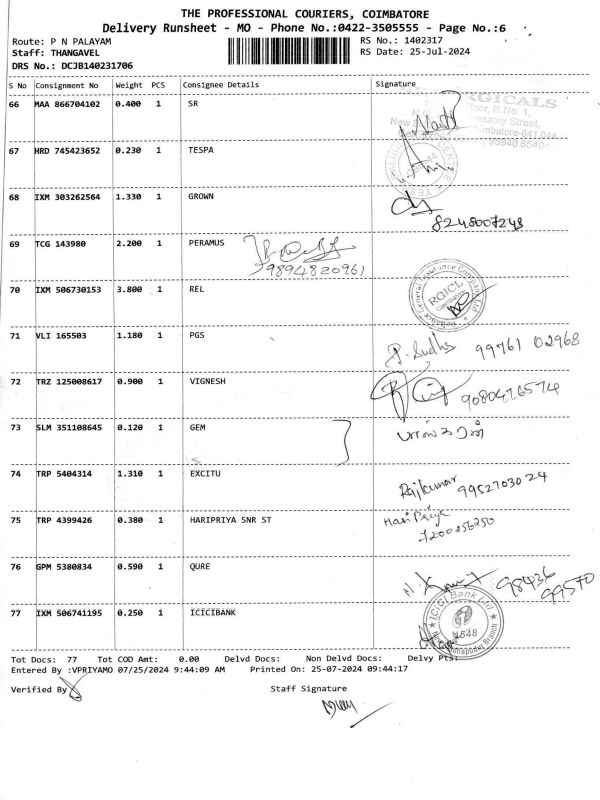 THE PROFESSIONAL COURIERS, COIMBATORE
Delivery Runsheet - MO - Phone No.:0422-3505555 - Page No.:6
Route: P N PALAYAM RS No.: 1402317
Staff: THANGAVEL RS Date: 25-Jul-2024
DRS No.: DCJB140231706
S No Consignment No Weight PCS Consignee Details Signature
66 MAA 866704102 0.400 1 SR
67 HRD 745423652 0.230 1 TESPA
68 IXM 303262564 1.330 1 GROWN
8248007248
69 TCG 143980 2.200 1 PERAMUS
9894820961
70 IXM 506730153 3.800 1 REL
Reliance General Insurance Company Ltd
RGICL
71 VLI 165503 1.180 1 PGS P. Sudha 99761 02968
72 TRZ 125008617 0.900 1 VIGNESH 9080476574
73 SLM 351108645 0.120 1 GEM
74 TRP 5404314 1.310 1 EXCITU Rajkumar 9952703024
75 TRP 4399426 0.380 1 HARIPRIYA SNR ST Hari Priya
7200256250
76 GPM 5380834 0.590 1 QURE 98436
99570
77 IXM 506741195 0.250 1 ICICIBANK
ICICI Bank Ltd
1548
Branch
Tot Docs: 77 Tot COD Amt: 0.00 Delvd Docs: Non Delvd Docs: Delvy Pts:
Entered By :VPRIYAMO 07/25/2024 9:44:09 AM Printed On: 25-07-2024 09:44:17
Verified By Staff Signature